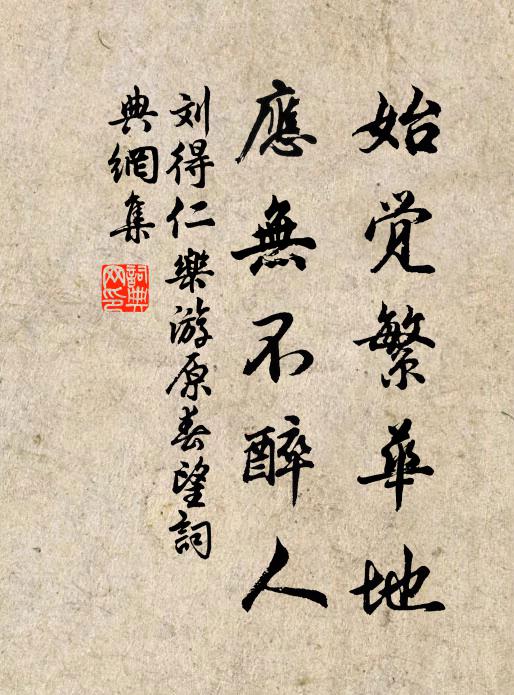 始觉繁华地
應無不醉人
刘得仁樂游原春望詞
典網集
詞典
网印